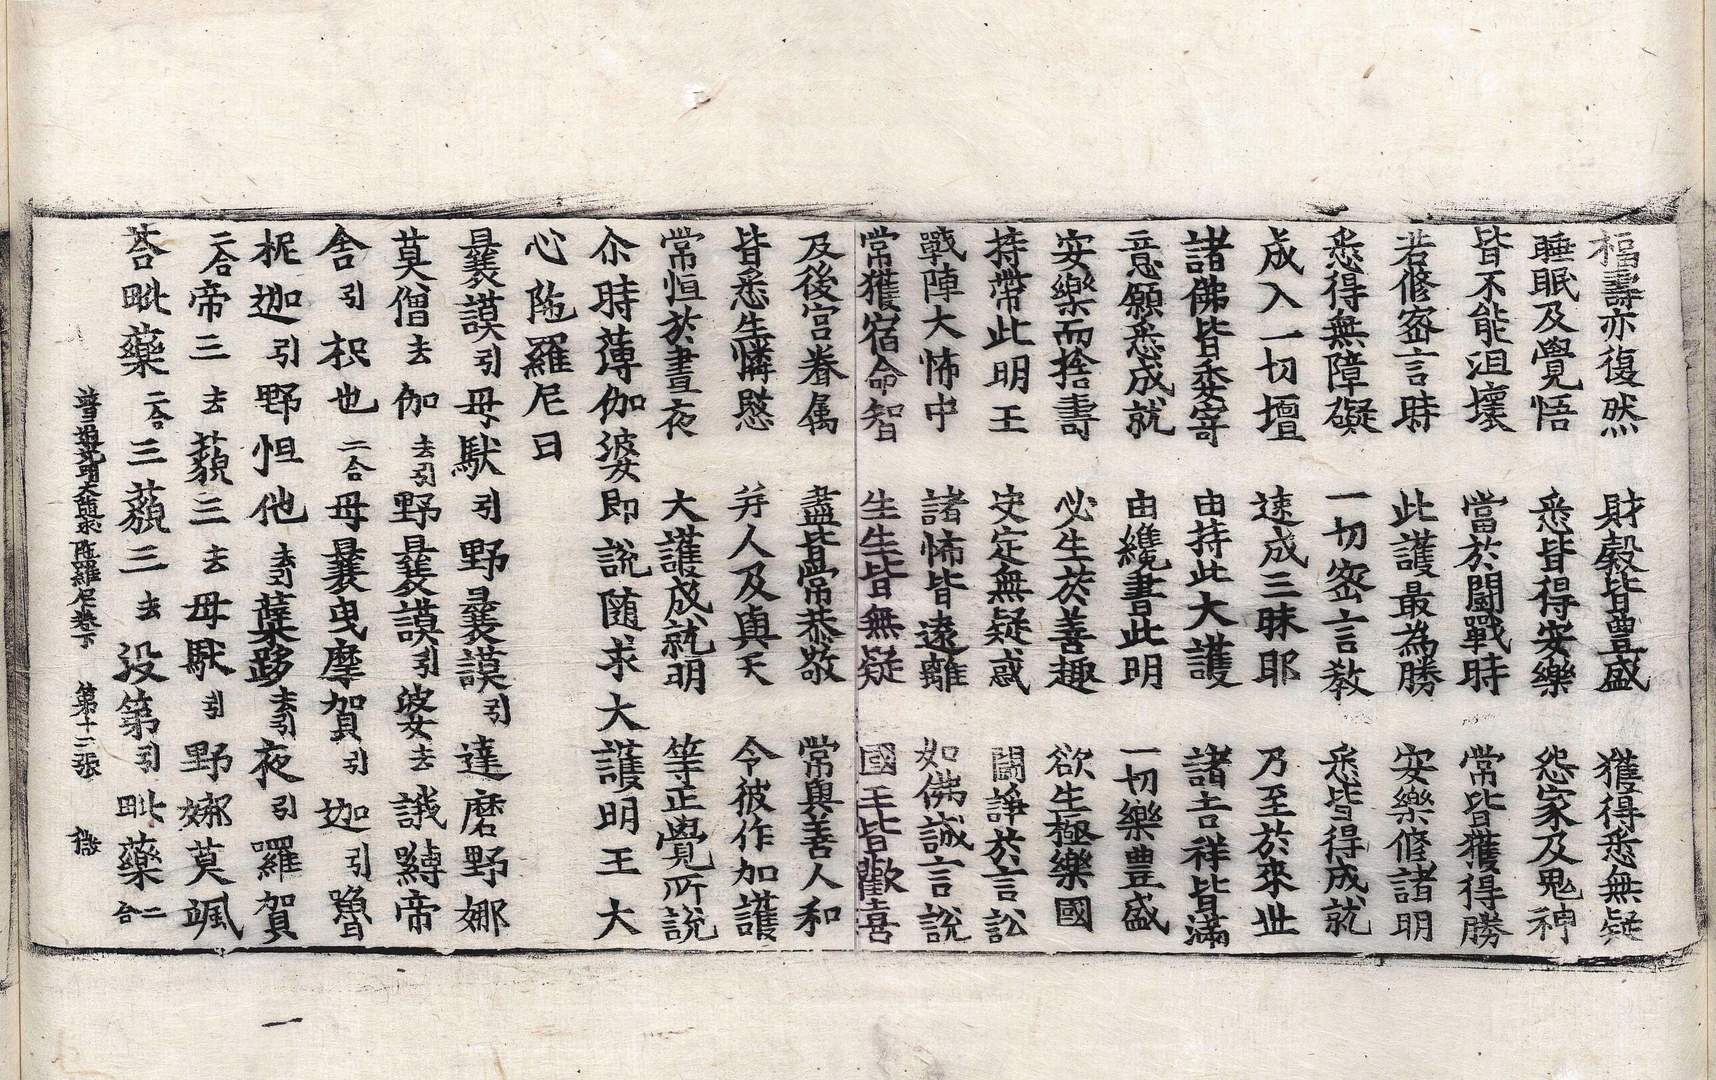 福壽亦復然　財穀皆豊盛　獲得悉無疑
睡眠及覺悟　悉皆得安樂　怨家及鬼神
皆不能沮壞　當於鬪戰時　常皆獲得勝
若修密言時　此護最為勝　安樂修諸明
悉得無障礙　一切密言教　悉皆得成就
成入一切壇　速成三昧耶　乃至於來世
諸佛皆委寄　由持此大護　諸吉祥皆滿
意願悉成就　由纔書此明　一切樂豊盛
安樂而捨壽　必生於善趣　欲生極樂國
持帶此明王　決定無疑惑　鬪諍於言訟
戰陣大怖中　諸怖皆遠離　如佛誠言說
常獲宿命智　生生皆無疑　國王皆歡喜
及後宮眷属　盡皆常恭敬　常與善人和
皆悉生憐愍　并人及與天　令彼作加護
常恒於晝夜　大護成就明　等正覺所說
尒時薄伽婆即說随求大護明王大
心陁羅尼曰
曩謨引母馱引野曩謨引達磨野娜
莫僧去伽去引野曩謨引婆去誐嚩帝
舍引枳也二合母曩曳摩賀引迦引嚕
柅迦引野怛他去引蘖跢去引夜引囉賀
二合帝三去藐三去母馱引野娜莫颯
荅毗藥二合三藐三去没第引毗藥二合
普遍光明大随求陁羅尼卷下　第十二張　微